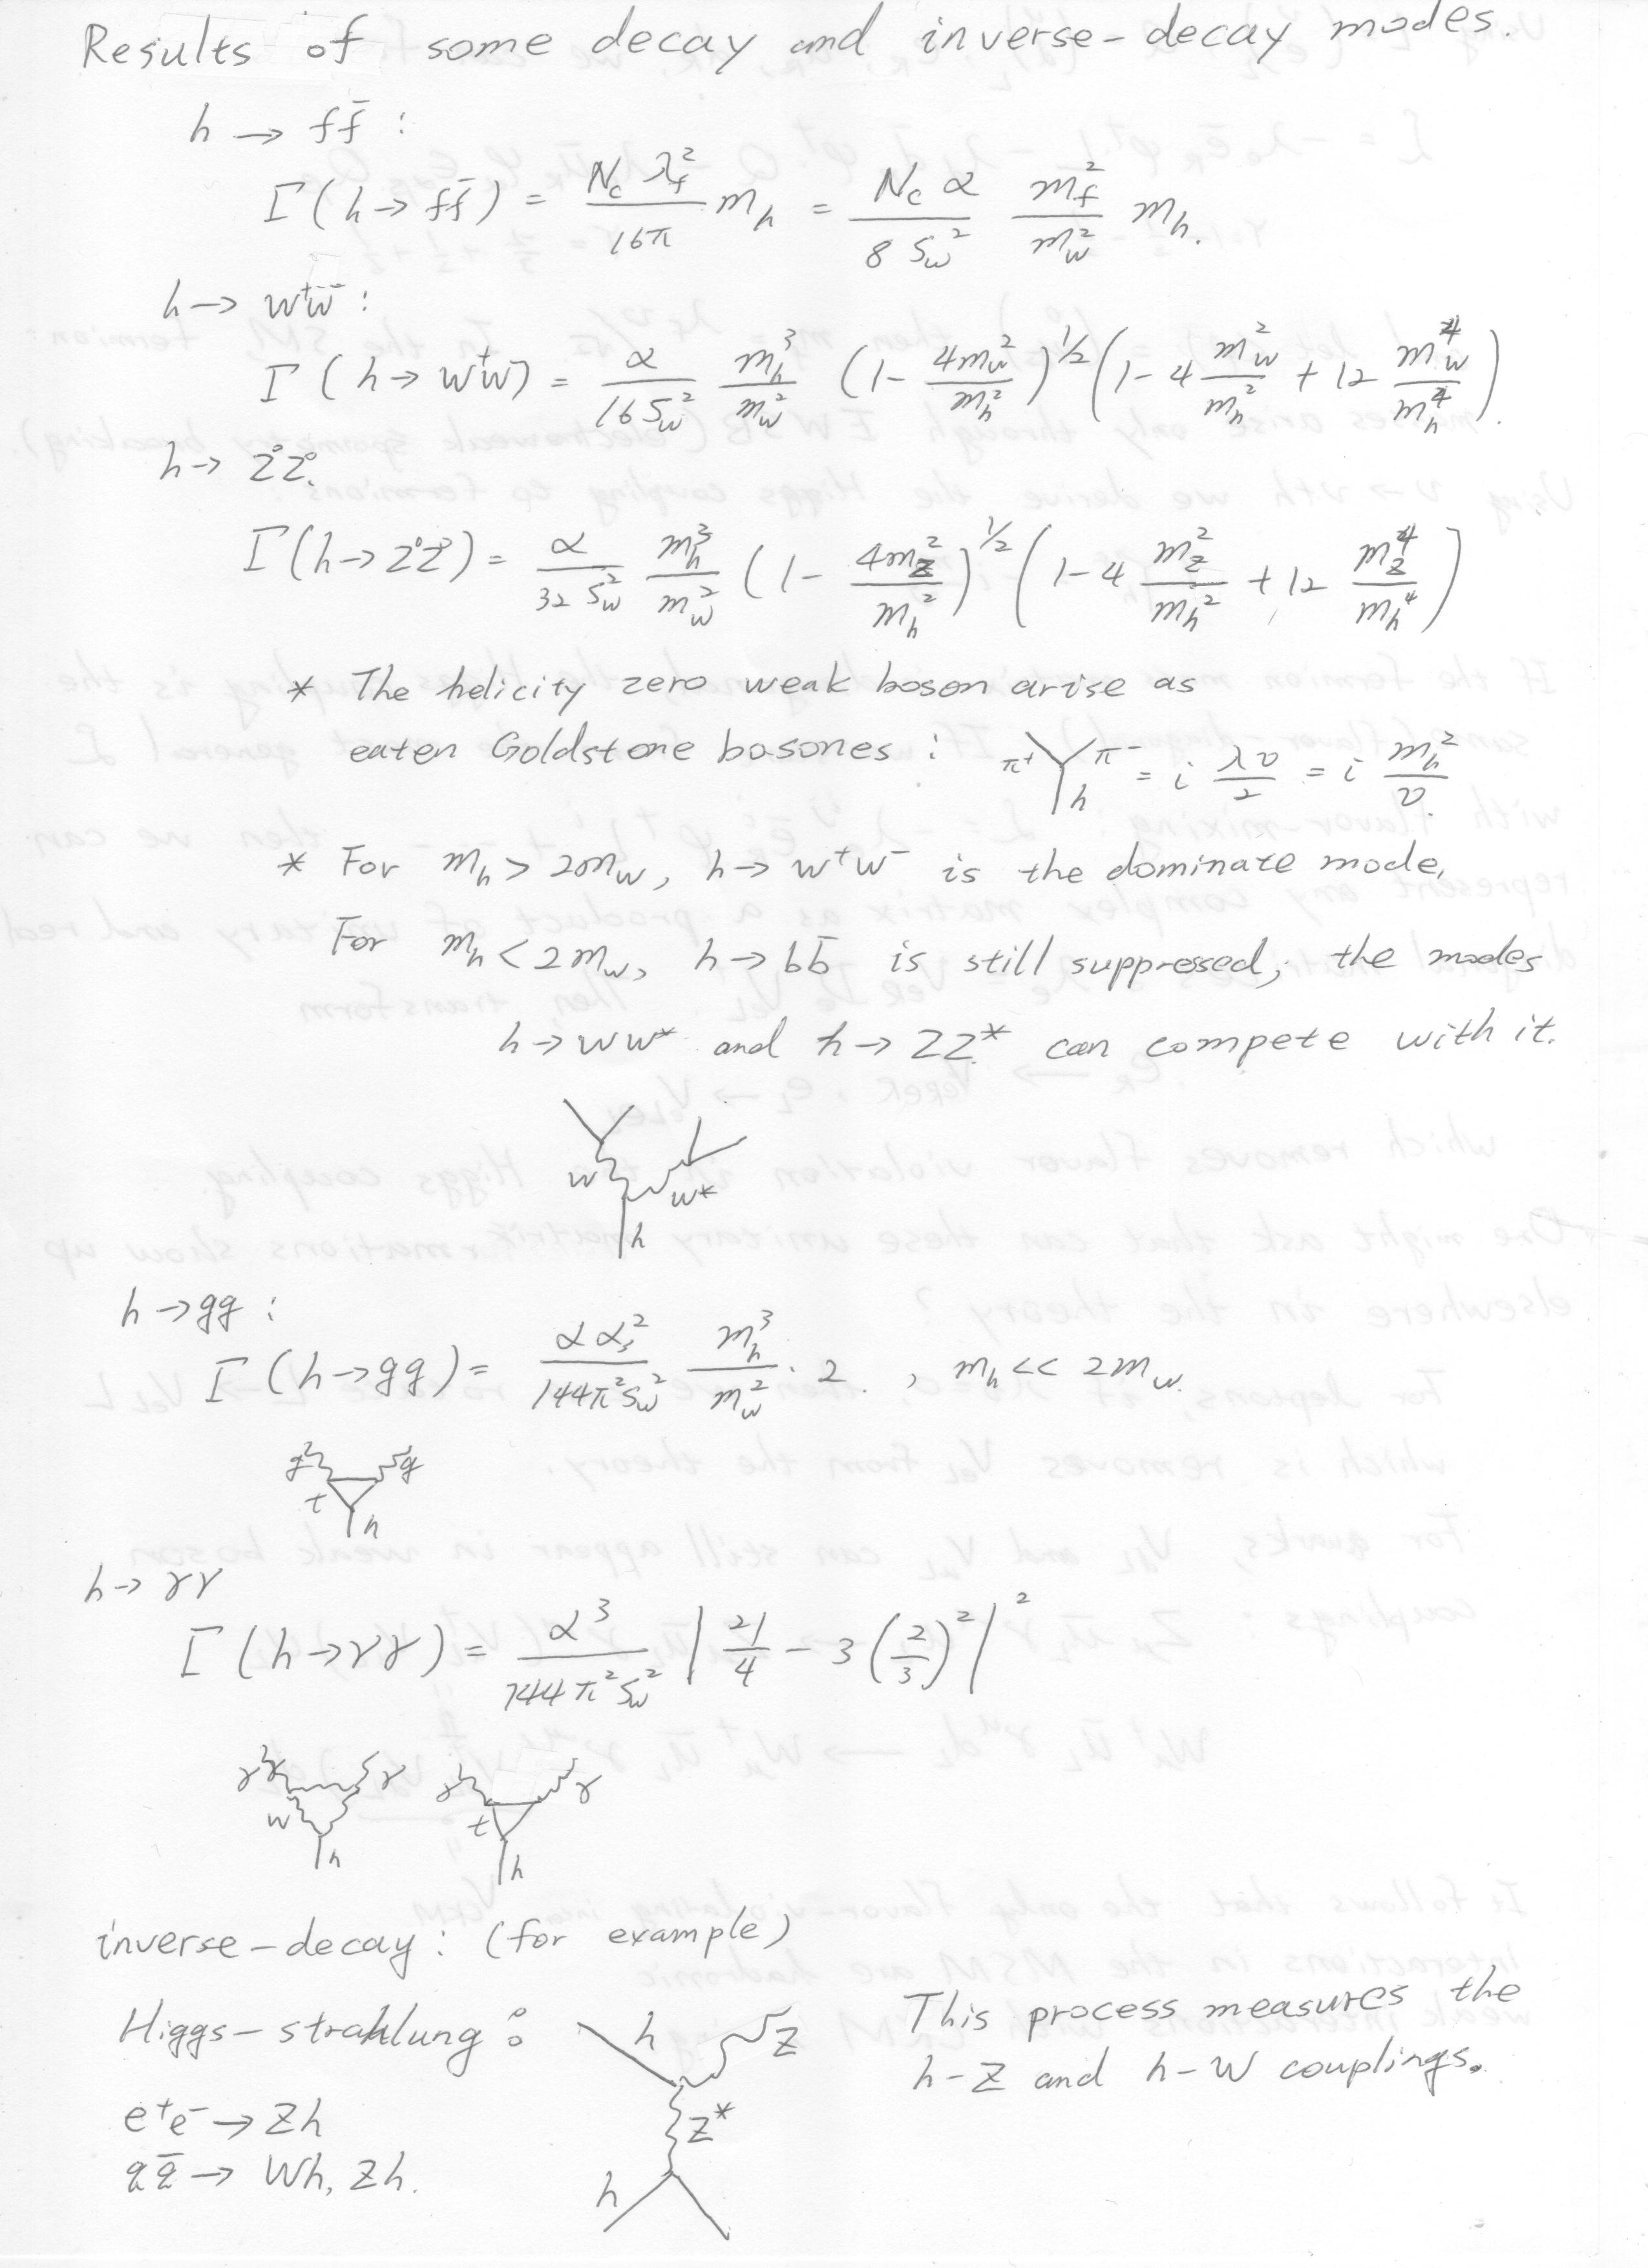 Results of some decay and inverse-decay modes.
h → f f̄ :
Γ(h→f f̄) = N_c λ_f^2 / 16π m_h = N_c α / 8 S_w^2 m_f^2 / m_w^2 m_h.
h → w⁺w⁻ :
Γ(h→w⁺w⁻) = α / 16 S_w^2 m_h^3 / m_w^2 (1 - 4m_w^2 / m_h^2)^1/2 (1 - 4 m_w^2 / m_h^2 + 12 m_w^4 / m_h^4).
h → Z⁰Z⁰.
Γ(h→Z⁰Z⁰) = α / 32 S_w^2 m_h^3 / m_w^2 (1 - 4m_z^2 / m_h^2)^1/2 (1 - 4 m_z^2 / m_h^2 + 12 m_z^4 / m_h^4)
* The helicity zero weak boson arise as
eaten Goldstone bosones : π⁺ π⁻ h = i λv / 2 = i m_h^2 / v.
* For m_h > 2m_w, h → w⁺w⁻ is the dominate mode,
For m_h < 2m_w, h → b b̄ is still suppressed; the modes
h → w w* and h → Z Z* can compete with it.
w w*
h
h → gg :
Γ(h→gg) = α α_s^2 / 144π^2 S_w^2 m_h^3 / m_w^2 · 2 . , m_h << 2m_w.
g g
t
h
h → γγ
Γ(h→γγ) = α^3 / 144π^2 S_w^2 | 21/4 - 3 (2/3)^2 |^2
γ γ γ γ
w t
h h
inverse-decay : (for example)
Higgs-strahlung : h Z This process measures the
h-Z and h-W couplings.
e⁺e⁻ → Zh Z*
q q̄ → Wh, Zh. h